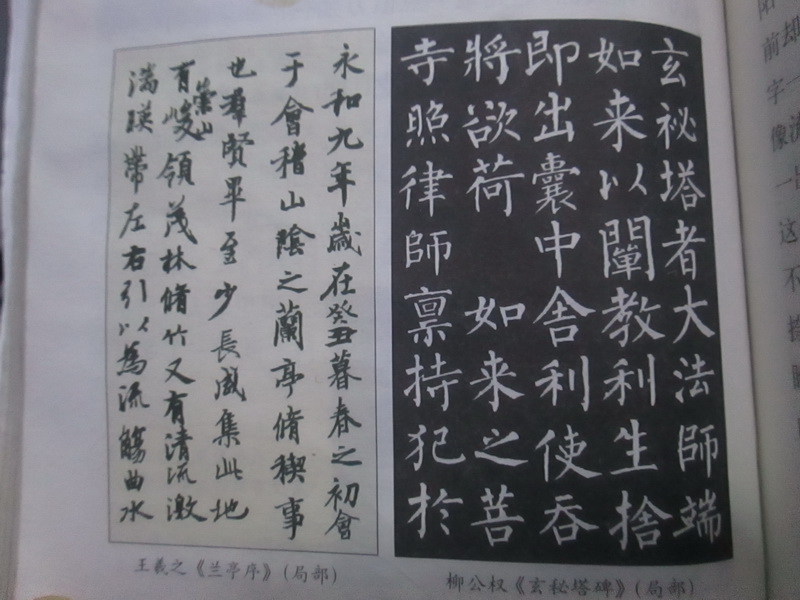 永和九年歲在癸丑暮春之初會
于會稽山陰之蘭亭脩稧事
也羣賢畢至少長咸集此地
有崇山峻領茂林脩竹又有清流激
湍暎帶左右引以為流觴曲水
王羲之《兰亭序》(局部)
玄祕塔者大法師端
如来以闡教利生捨
即出囊中舍利使吞
將欲荷 如来之菩
寺照律師禀持犯於
柳公权《玄秘塔碑》(局部)
前却
字一
像
一
这
不